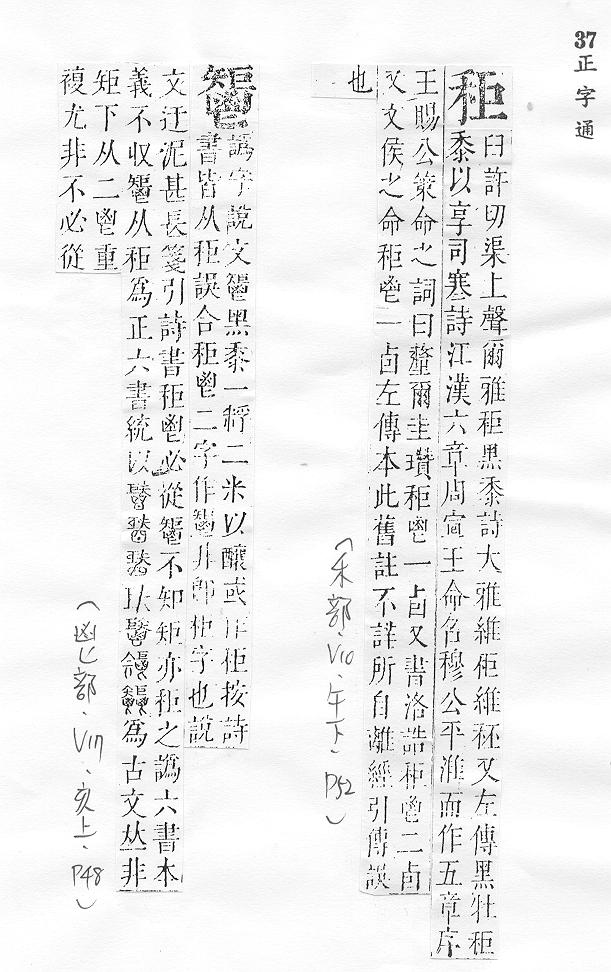 37正字通
秬
臼許切渠上聲爾雅秬黑黍詩大雅維秬維秠又左傳黑牡秬
黍以享司寒詩江漢六章周宣王命召穆公平淮而作五章序
王賜公策命之詞曰釐爾圭瓚秬鬯一卣又書洛誥秬鬯二卣
又文侯之命秬鬯一卣左傳本此舊註不詳所自離經引傳誤
也
(禾部、V10、午下、P52)
譌字說文黑黍一稃二米以釀或作秬按詩
書皆从秬誤合秬鬯二字作非卽秬字也說
文迂泥甚長箋引詩書秬鬯必從不知矩亦秬之譌六書本
義不收从秬爲正六書統以爲古文丛非
矩下从二鬯重
複尤非不必從
(鬯部、V17、亥上、P48)